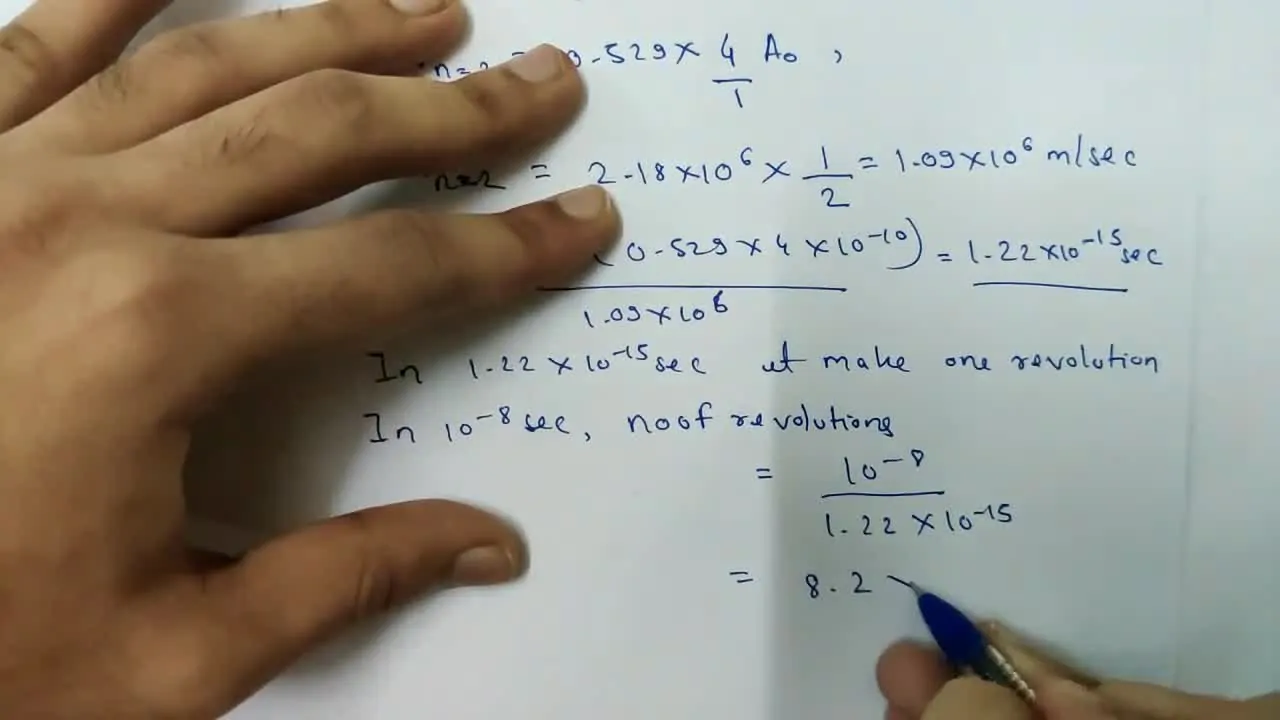 n=2 = 0.529 × 4/1 A₀ ,
n=2 = 2.18 × 10⁶ × 1/2 = 1.09 × 10⁶ m/sec
(0.529 × 4 × 10⁻¹⁰) = 1.22 × 10⁻¹⁵ sec
1.09 × 10⁶
In 1.22 × 10⁻¹⁵ sec it make one revolution
In 10⁻⁸ sec, no of revolutions
= 10⁻⁸
1.22 × 10⁻¹⁵
= 8.2